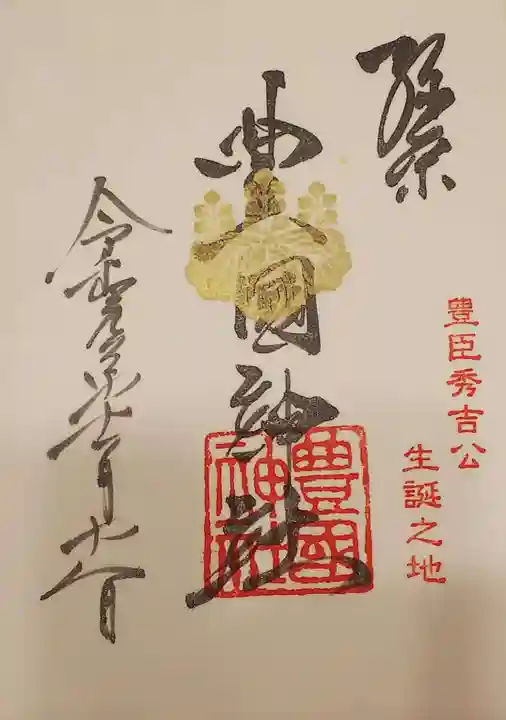 豊臣秀吉公
生誕之地
豊國神社
豊國
神社
令和元年十一月十八日